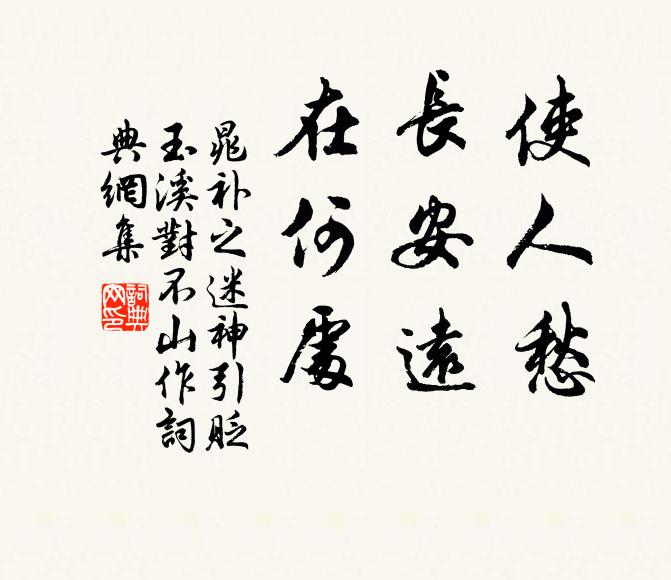 使人愁
長安遠
在何處
晁补之迷神引貶
玉溪對不山作詞
典網集
詞典
网印